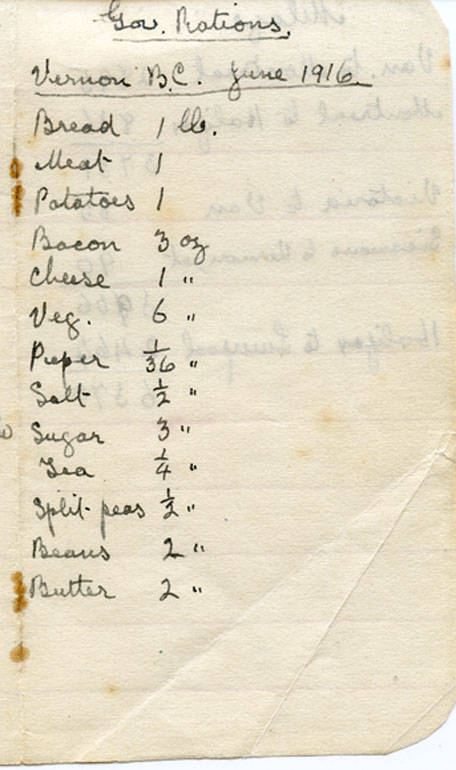 Gov. Rations.
Vernon B.C. June 1916.
Bread 1 lb.
Meat 1
Potatoes 1
Bacon 3 oz
Cheese 1 "
Veg. 6 "
Pieper 1/36 "
Salt 1/2 "
Sugar 3 "
Tea 1/4 "
Split peas 1/2 "
Beans 2 "
Butter 2 "